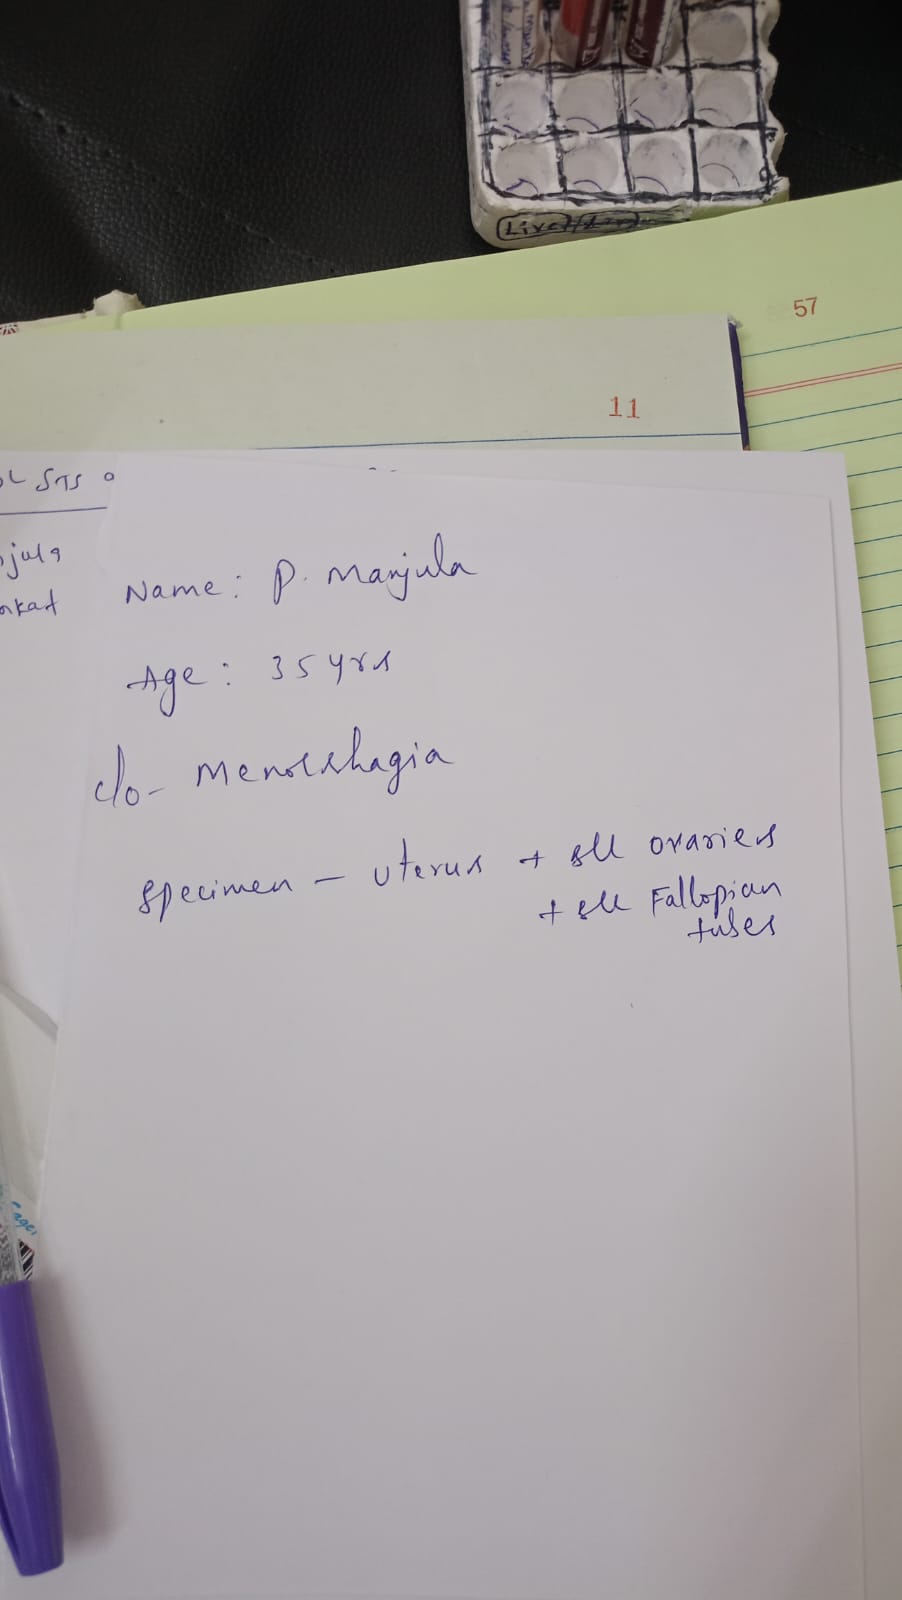 57
11
STS
Name: P. Manjula
Age: 35 yrs
c/o - Menorrhagia
Specimen - uterus + b/l ovaries
+ b/l Fallopian
tubes